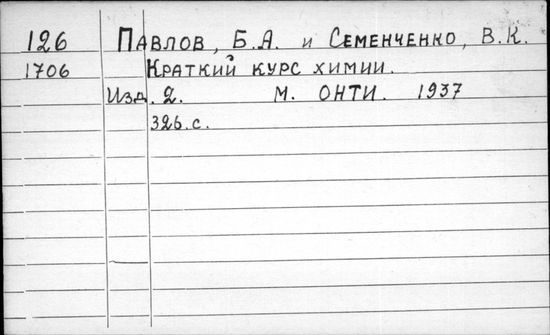 126 Павлов, Б.А. и Семенченко, В.К.
1706 Краткий курс химии.
Изд. 2. М. ОНТИ. 1937
326.с.